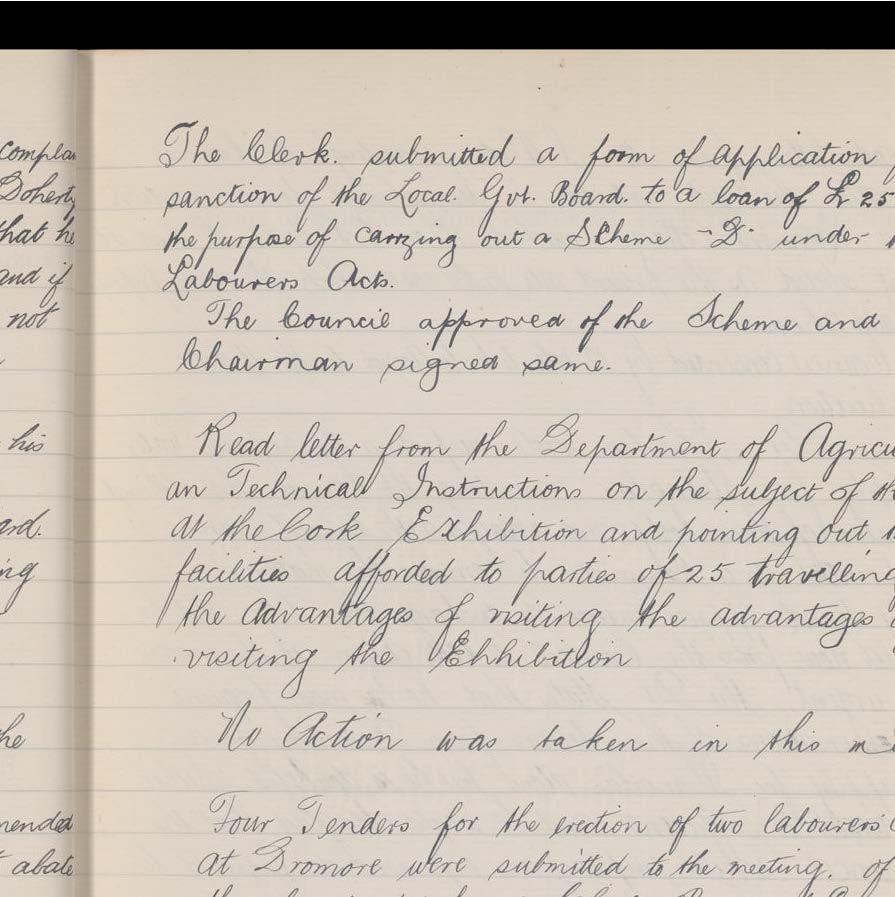 complai
Doherty
that he
and if
not
his
ard.
ng
he
mended
abate
The Clerk. submitted a form of application
sanction of the Local. Gvt. Board. to a loan of £ 25
the purpose of carrzing out a Scheme "D" under
Labourers Acts.
The Council approved of the Scheme and
Chairman signed same.
Read letter from the Department of Agricu
an Technical Instructions on the subject of th
at the Cork Exhibition and pointing out
facilities afforded to parties of 25 travelling
the advantages of visiting the advantages
visiting the Ehhibition
No Action was taken in this m
Four Tenders for the erection of two labourers'
at Dromore were submitted to the meeting. of